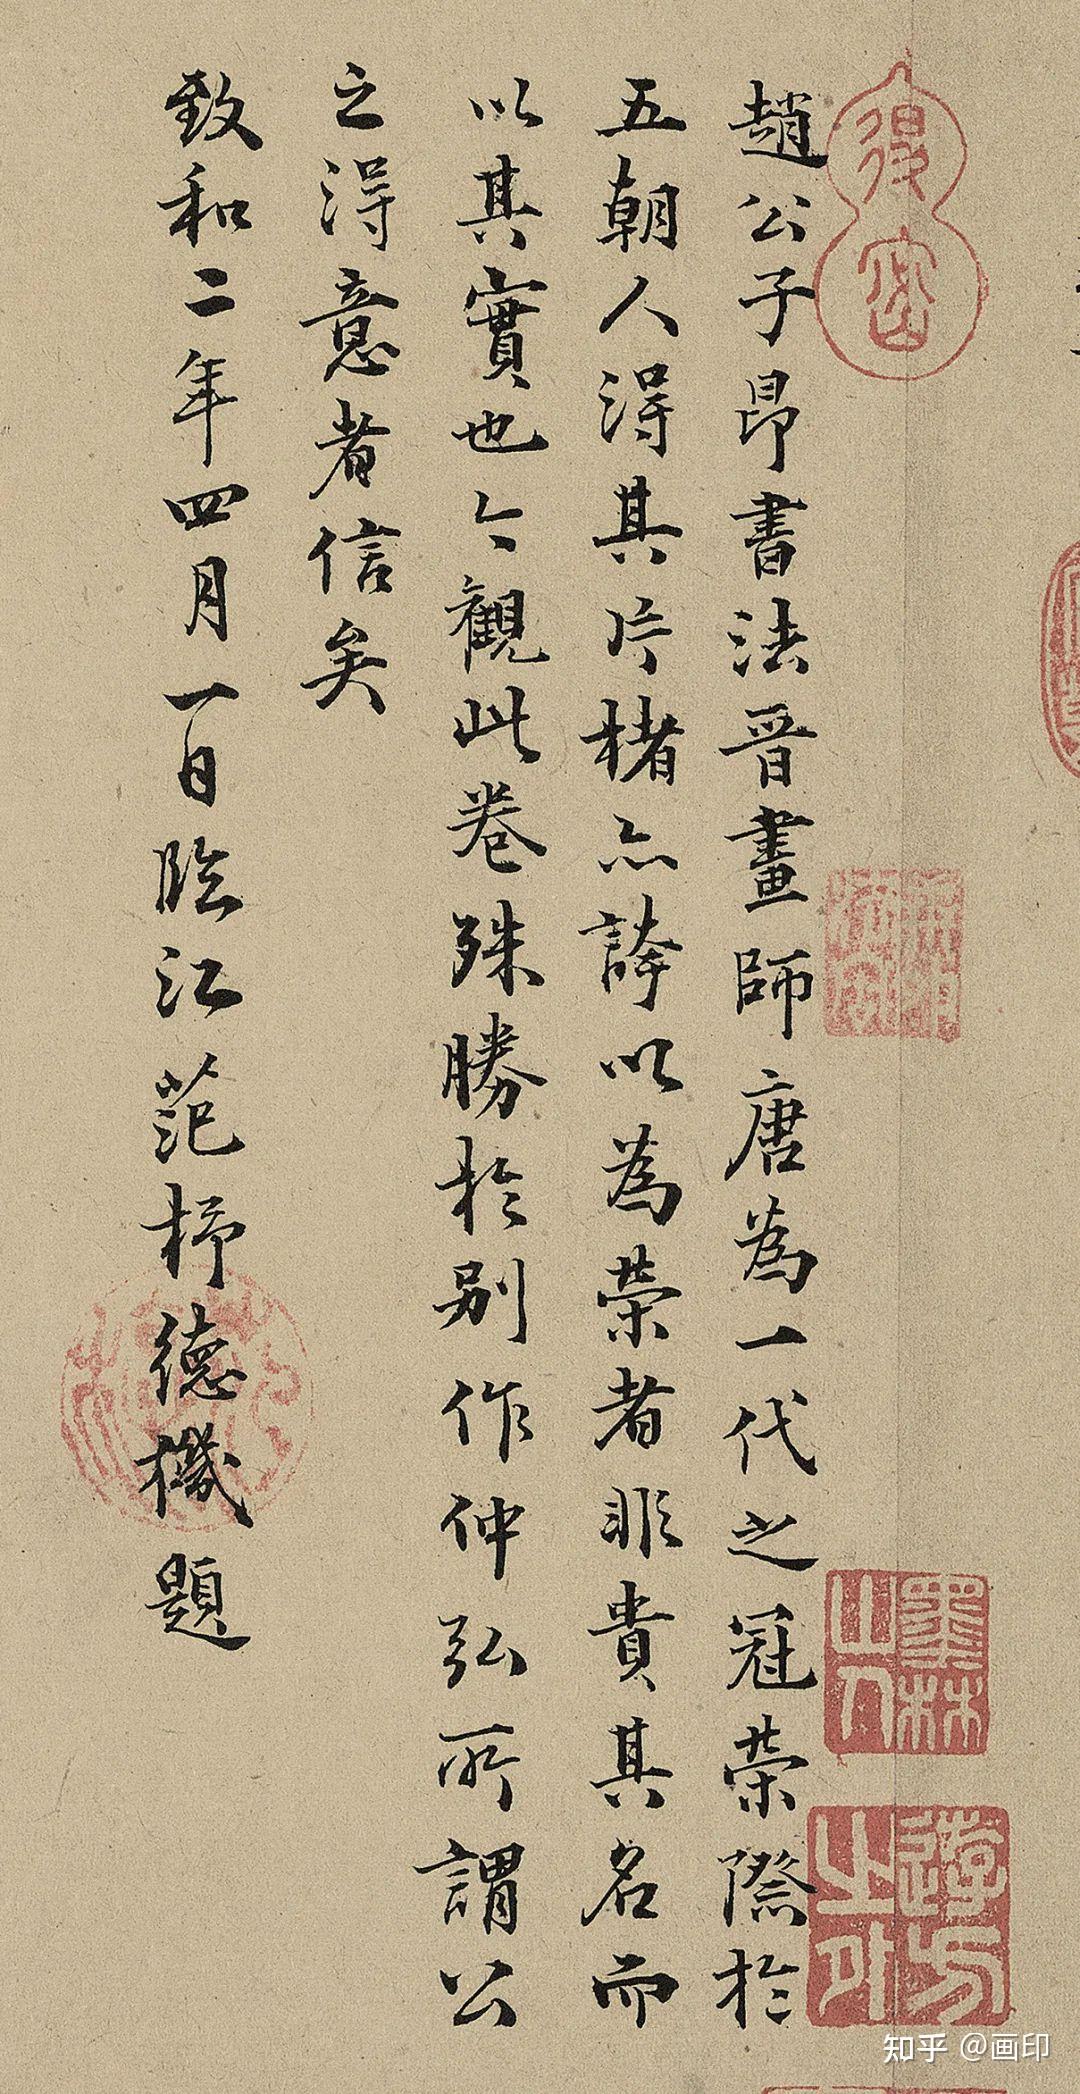 趙公子昂書法晉畫師唐為一代之冠榮際於
五朝人得其片楮亦誇以為榮者非貴其名而
以其實也今觀此卷殊勝於別作仲弘所謂公
之得意者信矣
致和二年四月一日臨江范梈德機題
墨林山人
知乎 @画印